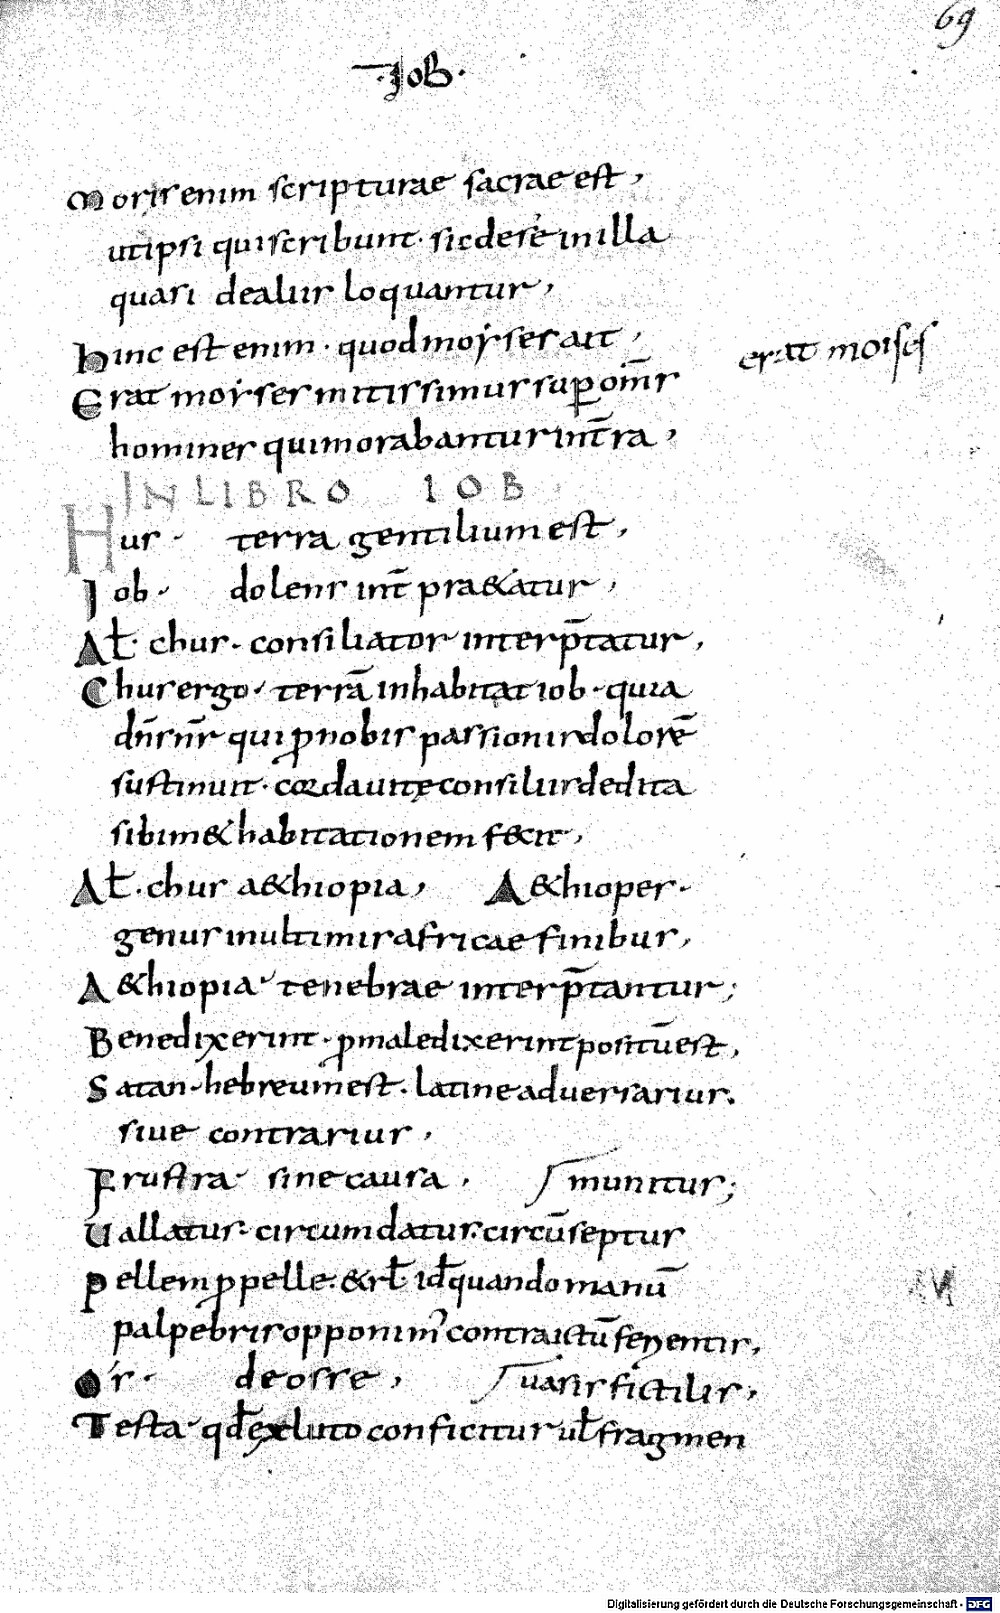 69
·IOB·
Moris enim scripturae sacrae est,
ut ipsi qui scribunt· sic de se in illa
quasi de aliis loquantur,
Hinc est enim· quod moyses ait,
erat moises
Erat moyses mitissimus sup om̅s
homines qui morabantur in t̅ra,
IN LIBRO IOB
Hus· terra gentilium est,
Iob· dolens int̅ praetatur,
Aƚ· chus· consiliator interp̅tatur,
Chus ergo· terrā inhabitat iob· quia
dn̅s nr̅ qui ꝓ nobis passionis dolorē
sustinuit· corda uitę consiliis dedita
sibimet habitationem fecit,
Aƚ· chus aethiopia, Aethiopes·
genus in ultimis africae finibus,
Aethiopia· tenebrae interp̅tantur;
Benedixerint· ꝓ maledixerint positū est,
Satan· hebreum est· latine adversarius·
sive contrarius,
Frustra· sine causa, munitur;
Uallatus· circumdatus· circūseptus
Pellem ꝓ pelle· & rƚ id̅ quando manū
palpebris opponim᾽ contra ictū ferientis,
Os· de osse, uasis fictilis,
Testa· qd̅ ex luto conficitur uƚ fragmen
Digitalisierung gefördert durch die Deutsche Forschungsgemeinschaft - DFG